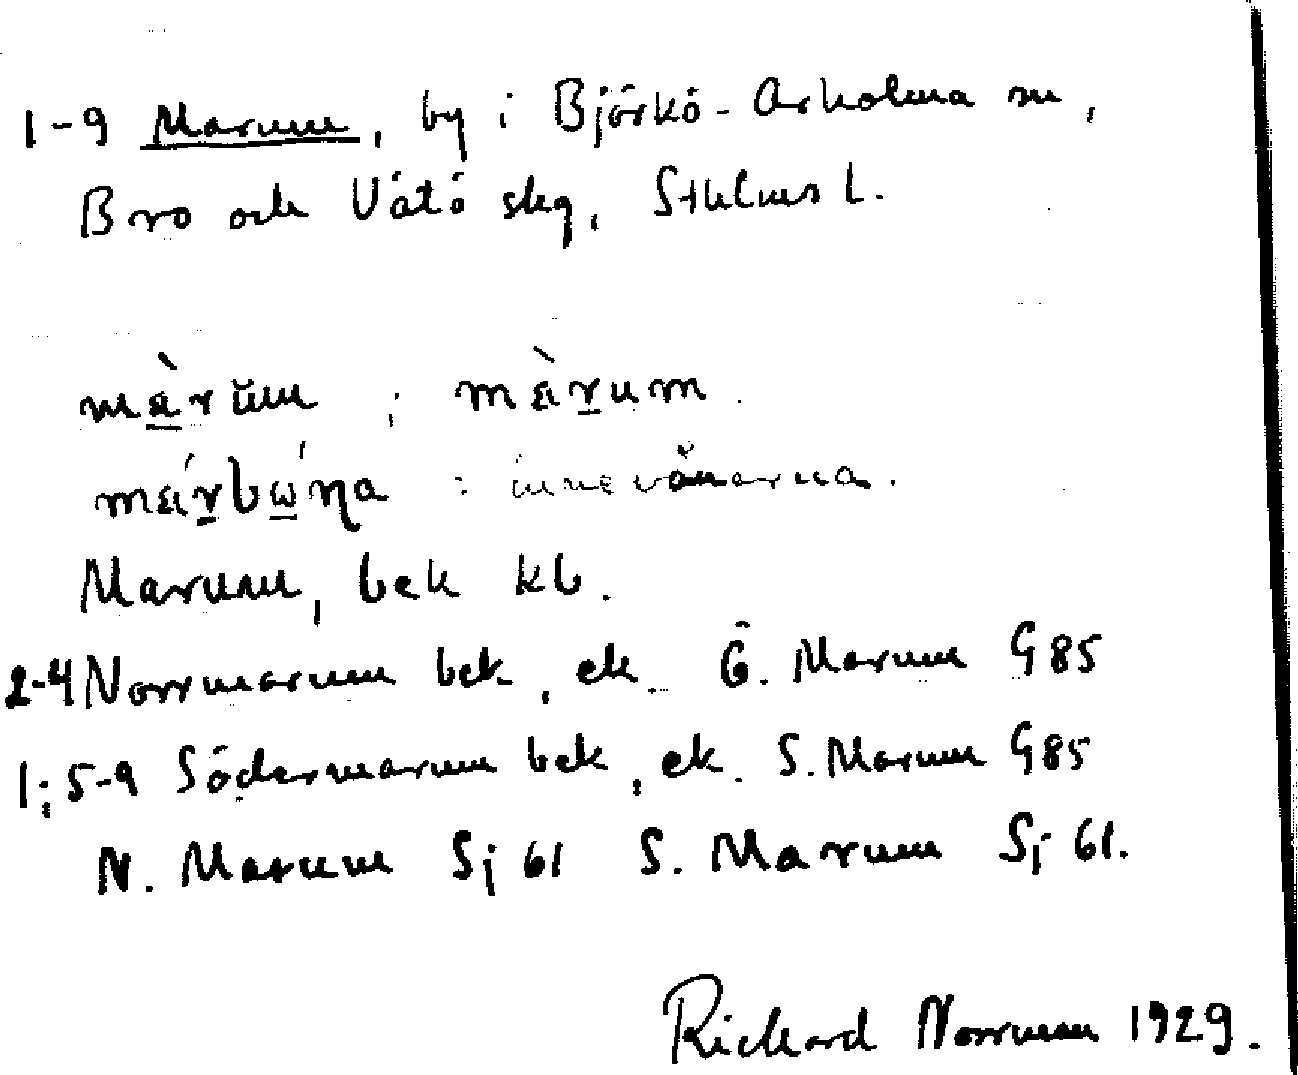 1-9 Marum, by i Björkö-Arholma sn,
Bro och Vätö skg, Sthlms l.
màrŭm ; màrum.
márbώ́ŋa : innevånarna.
Marum, bek kb.
2-4 Norrmarum bek, ek. Ö. Marum G 85
1; 5-9 Södermarum bek, ek. S. Marum G 85
N. Marum Sj 61 S. Marum Sj 61.
Rickard Norrman 1929.